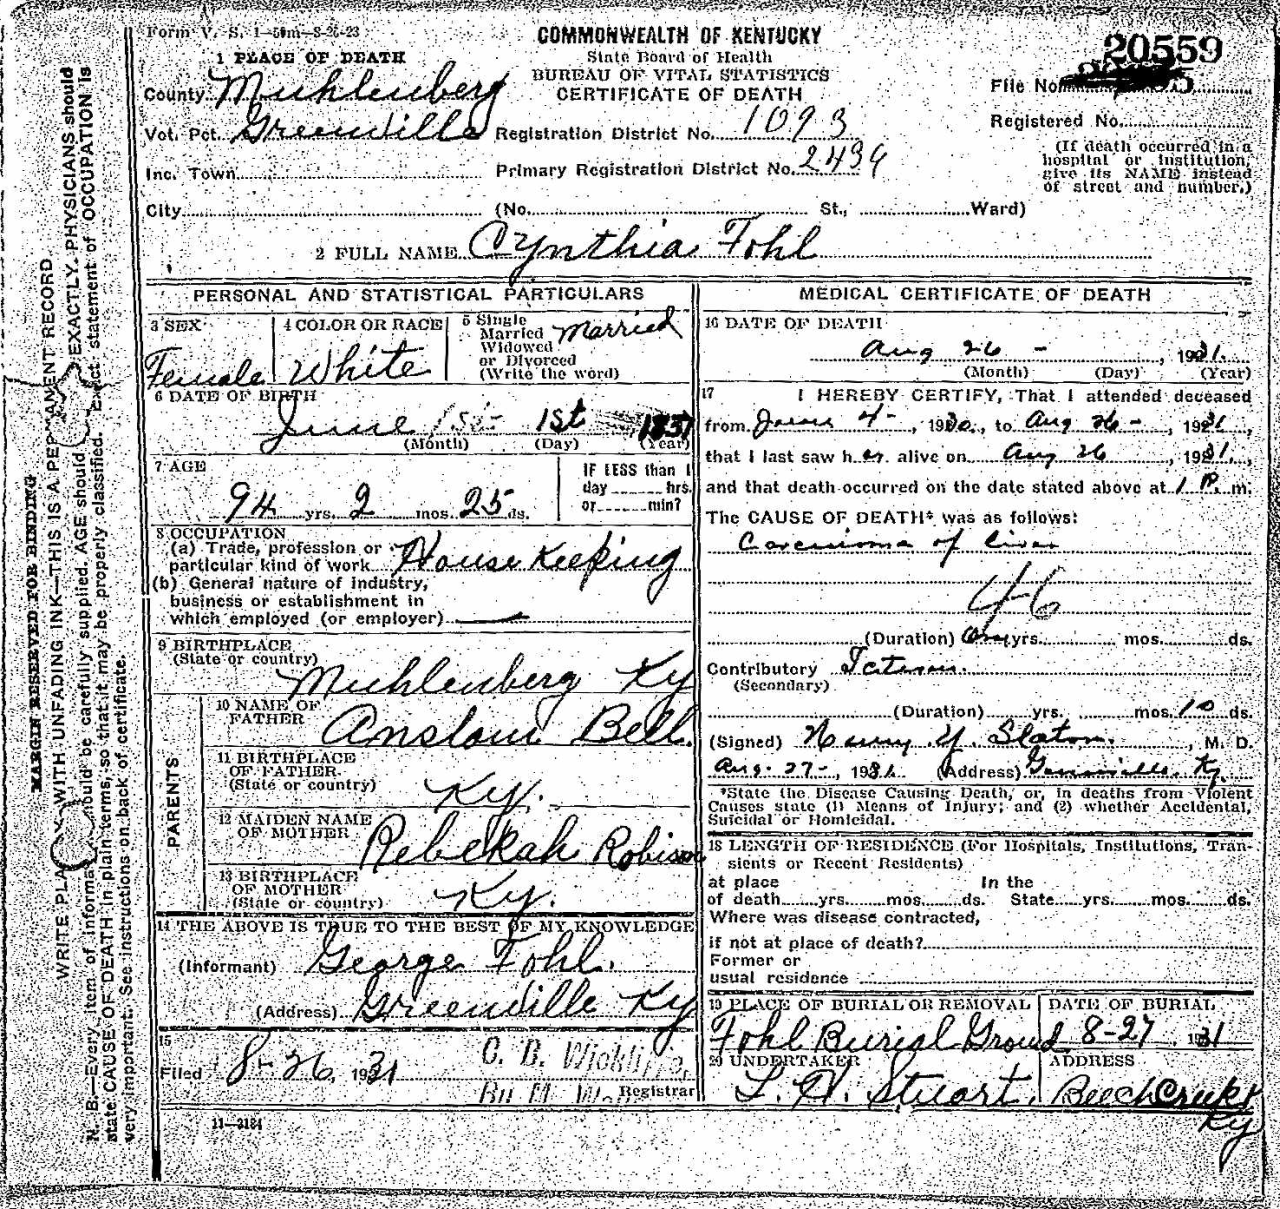 Form V. S. 1—50m—8-26-23
COMMONWEALTH OF KENTUCKY
State Board of Health
BUREAU OF VITAL STATISTICS
CERTIFICATE OF DEATH
20559
File No.
Registered No.
(If death occurred in a
hospital or institution,
give its NAME instead
of street and number.)
1 PLACE OF DEATH
County Muhlenberg
Vot. Pct. Greenville Registration District No. 1093
Inc. Town Primary Registration District No. 2434
City (No. St., Ward)
2 FULL NAME Cynthia Fohl
PERSONAL AND STATISTICAL PARTICULARS
3 SEX
Female
4 COLOR OR RACE
White
5 Single
Married
Widowed
or Divorced
(Write the word)
Married
6 DATE OF BIRTH
June 1st 1837
(Month) (Day) (Year)
7 AGE
94 yrs. 2 mos. 25 ds.
IF LESS than 1
day hrs.
or min?
8 OCCUPATION
(a) Trade, profession or
particular kind of work House Keeping
(b) General nature of industry,
business or establishment in
which employed (or employer)
9 BIRTHPLACE
(State or country)
Muhlenberg Ky
PARENTS
10 NAME OF
FATHER
Anslom Bell
11 BIRTHPLACE
OF FATHER
(State or country)
Ky.
12 MAIDEN NAME
OF MOTHER
Rebekah Robison
13 BIRTHPLACE
OF MOTHER
(State or country)
Ky.
14 THE ABOVE IS TRUE TO THE BEST OF MY KNOWLEDGE
(Informant) George Fohl.
(Address) Greenville Ky
15
Filed 8-26, 1931 C. B. Wickliffe,
Registrar
11—3184
MEDICAL CERTIFICATE OF DEATH
16 DATE OF DEATH
Aug 26 - , 1931.
(Month) (Day) (Year)
17 I HEREBY CERTIFY, That I attended deceased
from June 4 -, 1930, to Aug 26 -, 1931,
that I last saw her alive on Aug 26, 1931,
and that death occurred on the date stated above at 1 P. m.
The CAUSE OF DEATH* was as follows:
Carcinoma of liver
46
(Duration) yrs. mos. ds.
Contributory
(Secondary)
(Duration) yrs. mos. 10 ds.
(Signed) Henry Y. Slaton, M. D.
Aug. 27-, 1931. (Address) Greenville, Ky.
*State the Disease Causing Death, or, in deaths from Violent
Causes state (1) Means of Injury; and (2) whether Accidental,
Suicidal or Homicidal.
18 LENGTH OF RESIDENCE (For Hospitals, Institutions, Tran-
sients or Recent Residents)
at place In the
of death yrs. mos. ds. State yrs. mos. ds.
Where was disease contracted,
if not at place of death?
Former or
usual residence
19 PLACE OF BURIAL OR REMOVAL
Fohl Burial Ground
DATE OF BURIAL
8-27, 1931
20 UNDERTAKER
L. H. Stuart.
ADDRESS
Beech Creek
Ky
MARGIN RESERVED FOR BINDING
WRITE PLAINLY WITH UNFADING INK—THIS IS A PERMANENT RECORD
N. B.—Every item of information should be carefully supplied. AGE should be EXACTLY. PHYSICIANS should
state CAUSE OF DEATH in plain terms, so that it may be properly classified. Exact statement of OCCUPATION is
very important. See instructions on back of certificate.